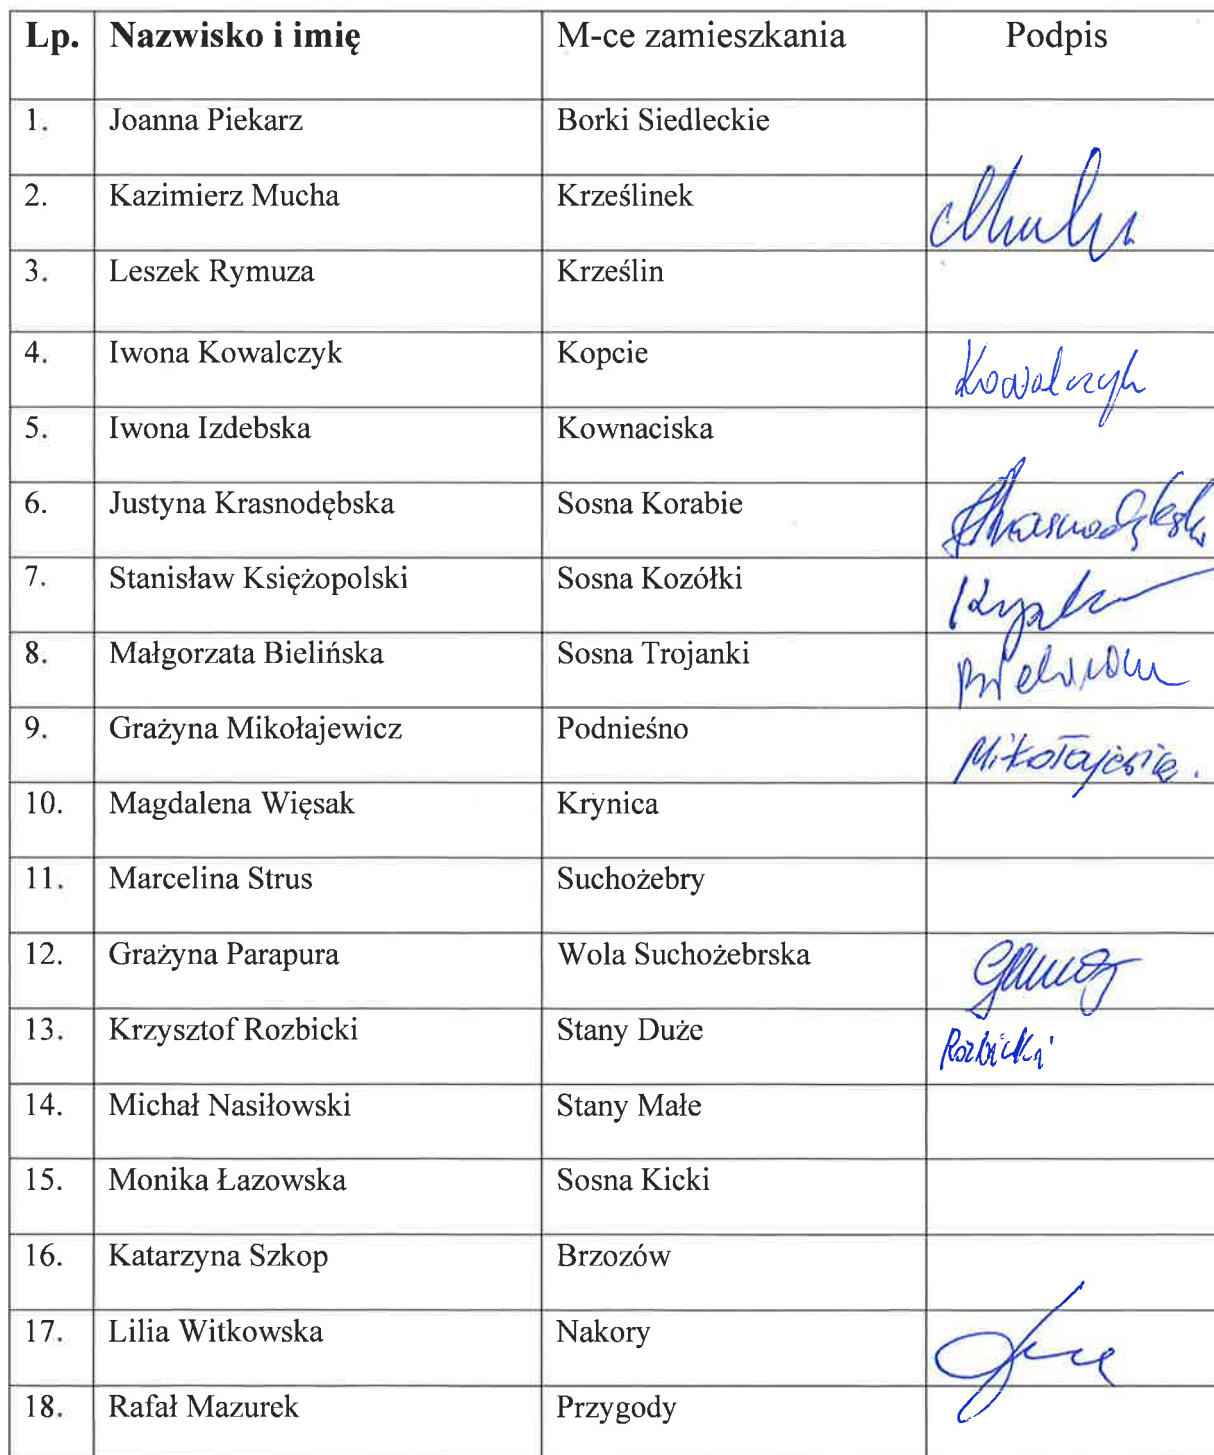 Lp. Nazwisko i imię M-ce zamieszkania Podpis
1. Joanna Piekarz Borki Siedleckie
2. Kazimierz Mucha Krześlinek Mucha
3. Leszek Rymuza Krześlin
4. Iwona Kowalczyk Kopcie Kowalczyk
5. Iwona Izdebska Kownaciska
6. Justyna Krasnodębska Sosna Korabie
7. Stanisław Księżopolski Sosna Kozółki
8. Małgorzata Bielińska Sosna Trojanki
9. Grażyna Mikołajewicz Podnieśno
10. Magdalena Więsak Krynica
11. Marcelina Strus Suchożebry
12. Grażyna Parapura Wola Suchożebrska
13. Krzysztof Rozbicki Stany Duże Rozbicki
14. Michał Nasiłowski Stany Małe
15. Monika Łazowska Sosna Kicki
16. Katarzyna Szkop Brzozów
17. Lilia Witkowska Nakory
18. Rafał Mazurek Przygody